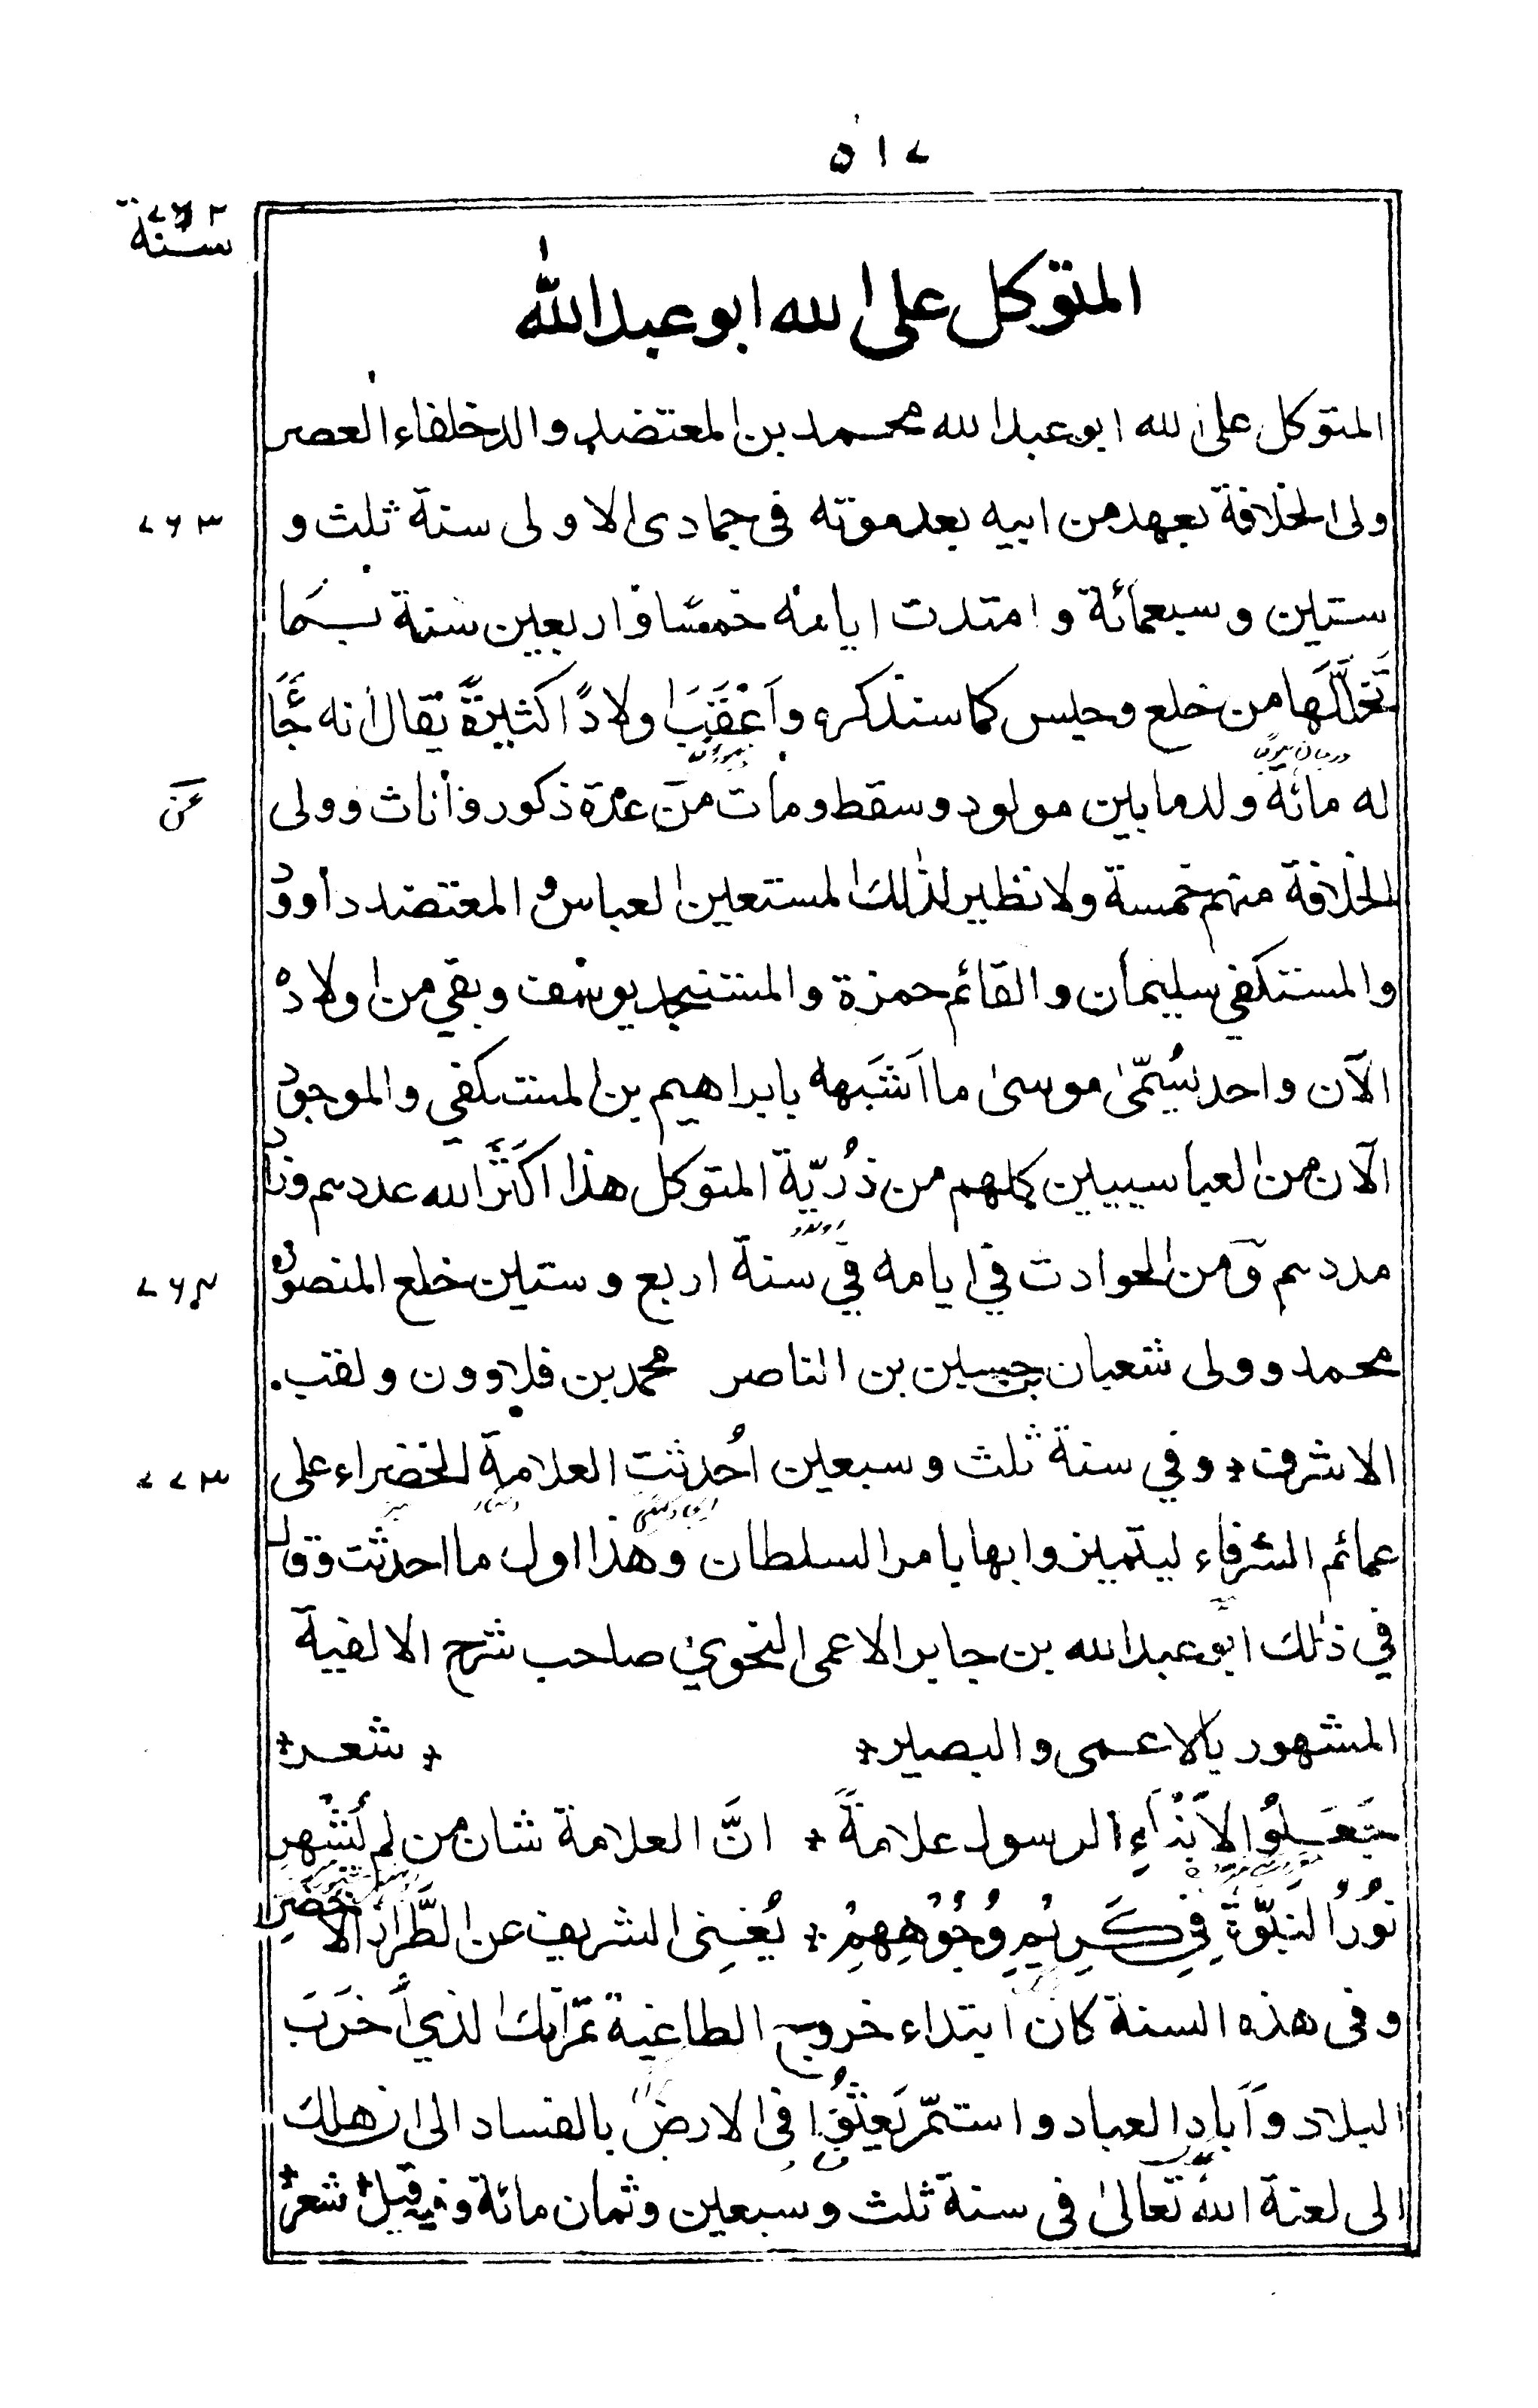 ٥١٧
سنة ٧٦٢
المتوكل على الله ابو عبد الله
المتوكل على الله ابو عبد الله محمد بن المعتضد والد خلفاء العصر
ولى الخلافة بعهد من ابيه بعد موته فى جمادى الاولى سنة ثلث و
٧٦٣
ستين و سبعمائة و امتدت ايامه خمسا و اربعين سنة بما
تخللها من خلع و حبس كما سنذكره و اَعْقَبَ اولادًا كثيرة يقال انه جَاءَ
له مائة ولد ما بين مولود و سقط و مات من عدة ذكور و أناث و ولى
عن
الخلافة منهم خمسة ولا نظير لذلك المستعين العباس و المعتضد داوود
والمستكفي سليمان و القائم حمزة و المستنجد يوسف و بقي من اولاده
الآن واحد يُسَمّىٰ موسىٰ ما اَشْبَهه بابراهيم بن المستكفي و الموجود
الآن من العباسيين كلهم من ذُرّيّة المتوكل هذا اكثَرَ الله عددهم و زاد
مددهم و من الحوادث في ايامه في سنة اربع و ستين خلع المنصور
٧٦٤
محمد و ولى شعبان بن حسين بن الناصر محمد بن قلاوون و لقب
الاشرف وفي سنة ثلث و سبعين اُحدثت العلامة الخضراء على
٧٧٣
عمائم الشرفاء ليتميزوا بها بامر السلطان و هذا اول ما احدثت و قال
في ذلك ابو عبد الله بن جابر الاعمى النحوي صاحب شرح الالفية
المشهور بالاعمى والبصير شعر
جَعَلُوا لاَبْنَاءِ الرسول علامةً انَّ العلامة شان من لم يُشْهِر
نُوْرُ النَبُوّةِ فِي كَرِيْمِ وُجُوْهِهِمْ يُغْنِى الشريف عن الطّرازِ الاخضرِ
و فى هذه السنة كان ابتداء خروج الطاغية تمرلنك الذي اَخرَبَ
البلاد و اَبادا لعباد و استمّر يَعْثُوْا فى الارض بالفساد الى ان هلك
الى لعنة الله تعالىٰ فى سنة ثلث و سبعين و ثمان مائة و فيه قيل شعر